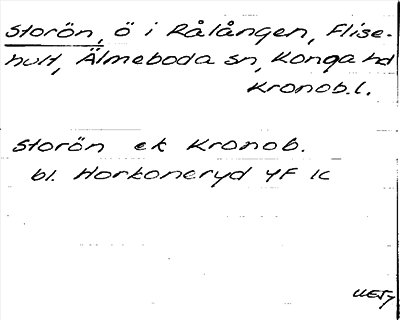 Storön, ö i Rålången, Flise-
hult, Älmeboda sn, Konga hd
Kronob.l.
Storön ek Kronob.
bl. Horkoneryd 4F 1c